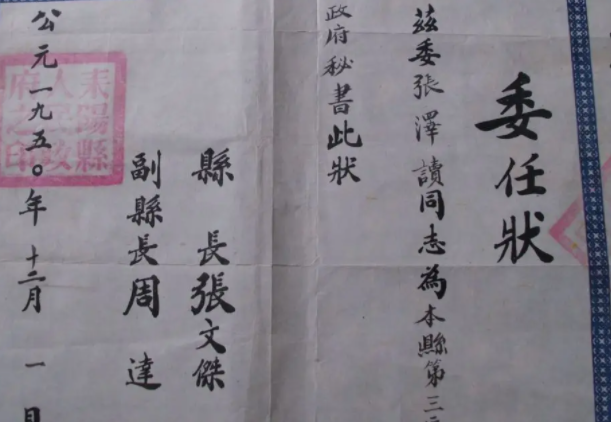 委任狀
茲委張澤讀同志為本縣第三
政府秘書此狀
縣長張文傑
副縣長周達
公元一九五〇年十二月一日
耒陽縣
人民政
府之印